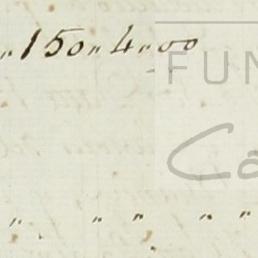 " 150 " 4 " 00
FUN
Ca
" " " " "